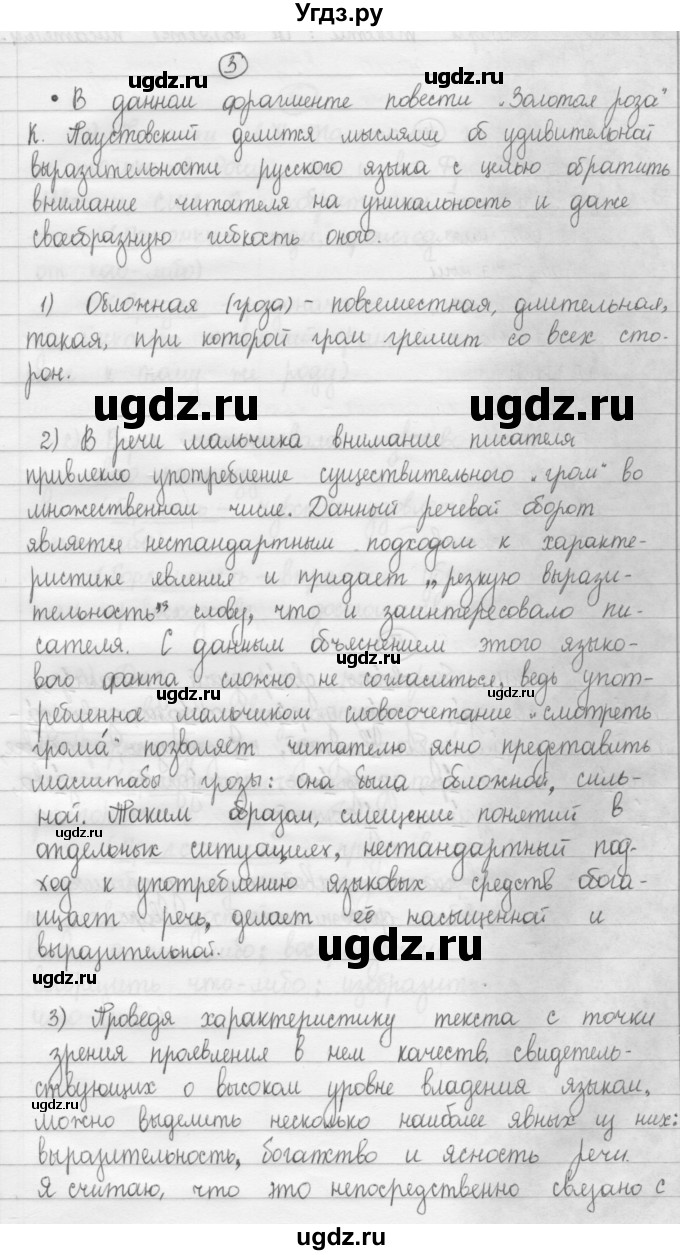 Угдз.ру
ugdz.ru
ugdz.ru
3
• В данном фрагменте повести „Золотая роза"
К. Паустовский делится мыслями об удивительной
выразительности русского языка с целью обратить
внимание читателя на уникальность и даже
своеобразную гибкость оного.
ugdz.ru
1) Обложная (гроза) - повсеместная, длительная,
такая, при которой гром гремит со всех сто-
рон.
ugdz.ru
ugdz.ru
2) В речи мальчика внимание писателя
привлекло употребление существительного „гром" во
множественном числе. Данный речевой оборот
является нестандартным подходом к характе-
ристике явления и придает „резкую вырази-
тельность" слову, что и заинтересовало пи-
сателя. С данным объяснением этого языко-
ugdz.ru
вого факта сложно не согласиться, ведь упот-
ugdz.ru
ugdz.ru
ребленное мальчиком словосочетание „смотреть
грома́" позволяет читателю ясно представить
масштабы грозы: она была обложной, силь-
ной. Таким образом, смещение понятий в
ugdz.ru
отдельных ситуациях, нестандартный под-
ход к употреблению языковых средств обога-
щает речь, делает её насыщенной и
выразительной.
ugdz.ru
ugdz.ru
3) Проведя характеристику текста с точки
зрения проявления в нем качеств, свидетель-
ствующих о высоком уровне владения языком,
ugdz.ru
можно выделить несколько наиболее явных из них:
выразительность, богатство и ясность речи.
Я считаю, что это непосредственно связано с
ugdz.ru
ugdz.ru